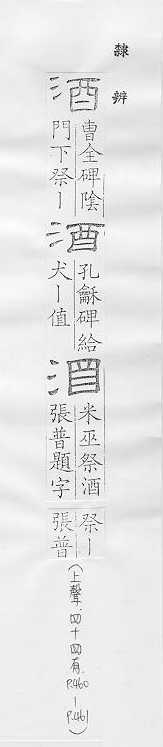 隸辨
酒
曹全碑陰
門下祭丨
酒
孔龢碑給
犬丨值
酒
米巫祭酒
張普題字
祭丨
張普
(上聲.四十四有.P.460—P.461)